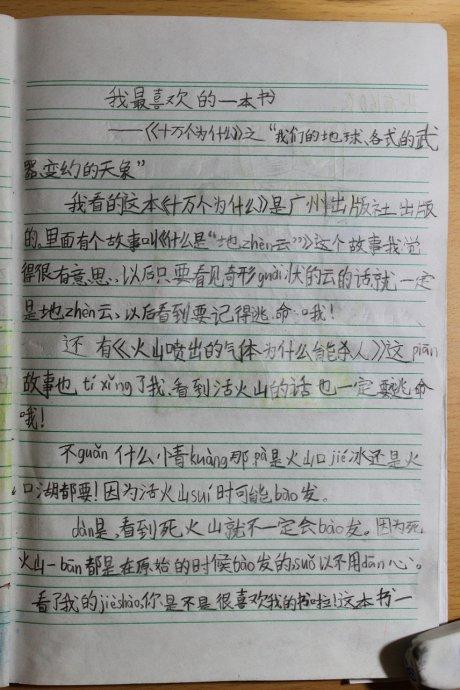 我最喜欢的一本书
——《十万个为什么》之“我们的地球、各式的武
器、变幻的天象”
我看的这本《十万个为什么》是广州出版社出版
的，里面有个故事叫《什么是“地zhèn云”》这个故事我觉
得很有意思，以后只要看见奇形guài状的云的话就一定
是地zhèn云，以后看到要记得逃命哦！
还有《火山喷出的气体为什么能杀人》这piān
故事也tí xǐng了我，看到活火山的话也一定要逃命
哦！
不guǎn什么情kuàng那pà是火山口jié冰还是火
口湖都要！因为活火山suí时可能bào发。
dàn是，看到死火山就不一定会bào发。因为死
火山一bān都是在原始的时候bào发的，suǒ以不用dān心。
看了我的jièshào，你是不是很喜欢我的书啦！这本书一